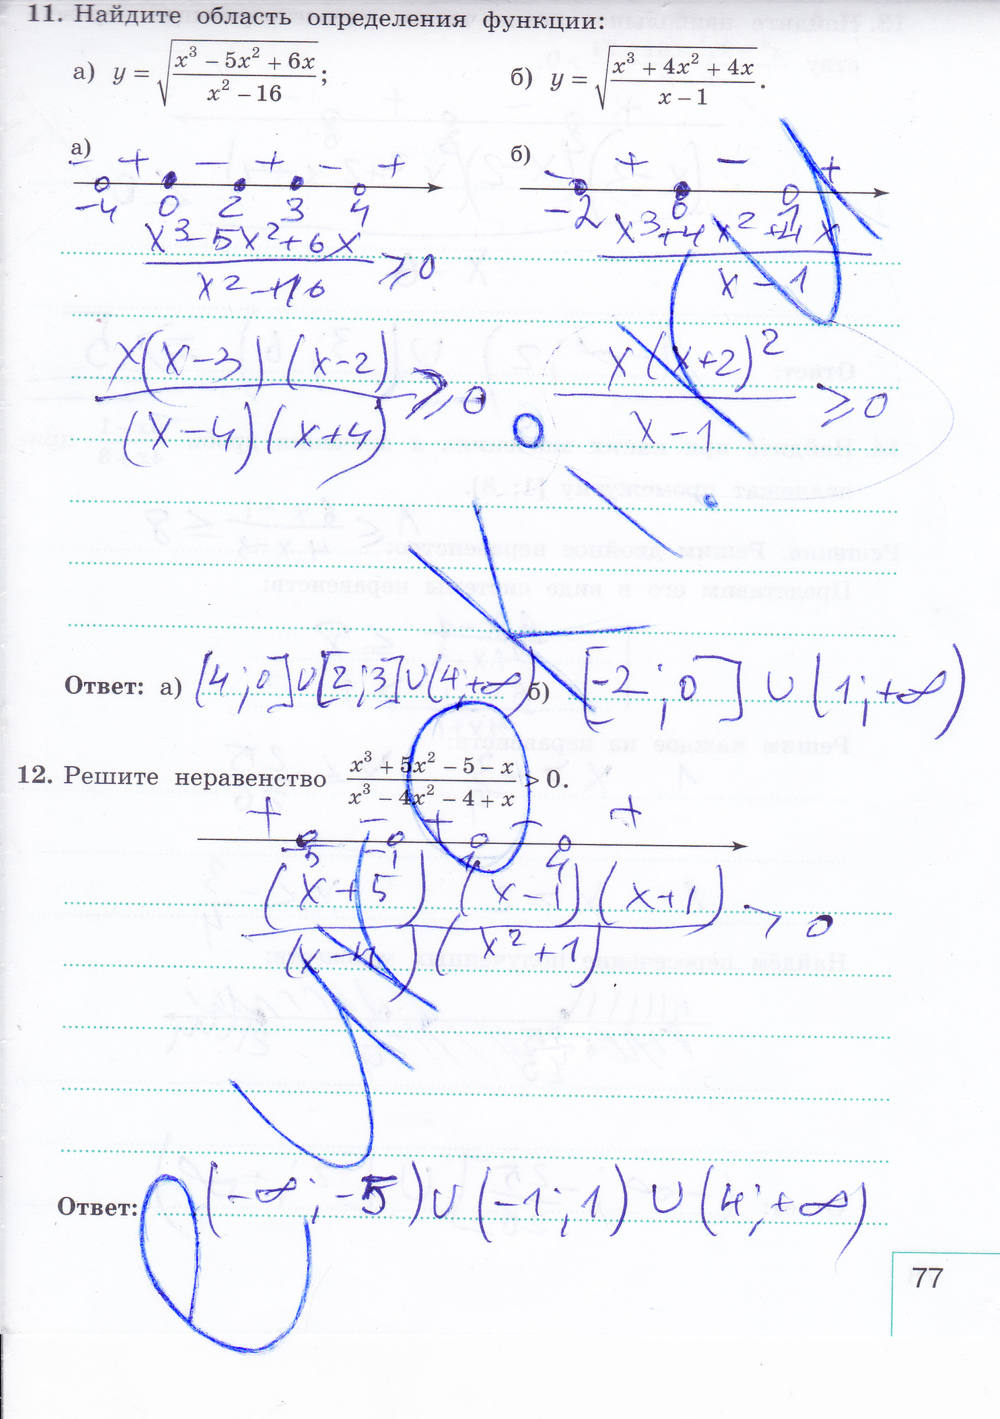 11. Найдите область определения функции:
а) y = √((x³ − 5x² + 6x)/(x² − 16));
б) y = √((x³ + 4x² + 4x)/(x − 1)).
а)
− + − + − +
−4 0 2 3 4
(x³ − 5x² + 6x)/(x² − 16) ≥ 0
(x(x−3)(x−2))/((x−4)(x+4)) ≥ 0
б)
− + − +
−2 0 1
(x³ + 4x² + 4x)/(x − 1)
(x(x+2)²)/(x−1) ≥ 0
Ответ: а) (4; 0] ∪ [2; 3] ∪ (4; +∞) б) [−2; 0] ∪ (1; +∞)
12. Решите неравенство (x³ + 5x² − 5 − x)/(x³ − 4x² − 4 + x) > 0.
+ − + − +
−5 −1 1 4
((x+5)(x−1)(x+1))/((x−4)(x²+1)) > 0
Ответ: (−∞; −5) ∪ (−1; 1) ∪ (4; +∞)
77